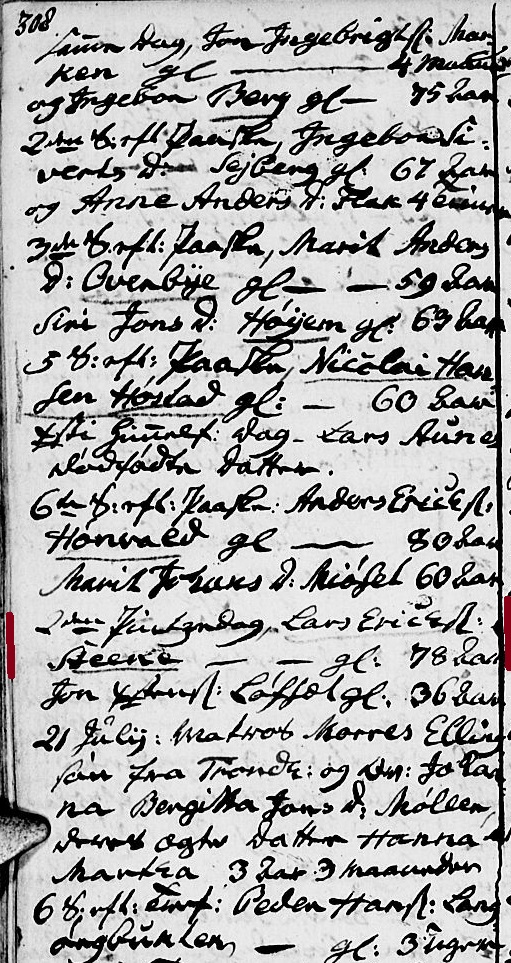 308
samme Dag, Jon Ingebrigtſ: Mar
ken gl — 4 Maaned
og Ingebor Berg gl — 75 Aar
2den S: eft Paaske, Ingebor Si-
verts D: Sejberg gl. 67 Aar
og Anne Anders D: Flak 4
3die S: eft: Paaske, Marit Anders
D: Overbÿe gl — — 59 Aar
Siri Jons D: Høÿem gl: 69 Aar
5 S: eft: Paaske, Nicolai Han
sen Høstad gl: — 60 Aar
Xsti Himmelf: Dag - Lars Aunes
dødfødte Datter.
6te S: eft: Paaske: Anders Ericks:
Honvald gl — 80 Aar
Marit Johans D: Miøset 60 Aar
2den Pintzedag, Lars Erickſ:
Steene — — gl: 78 Aar
Jon Løffset gl: 36 Aar
21 Julij: Matros Morres Elling
søn fra Trondh: og Johan
na Bergitta Jons D: Møller,
deres ægte Datter Hanna
Martha 3 Aar 3 Maaneder
6 S: eft: Peder Hansſ: Lang
ørgbunten — gl: 3 Uger